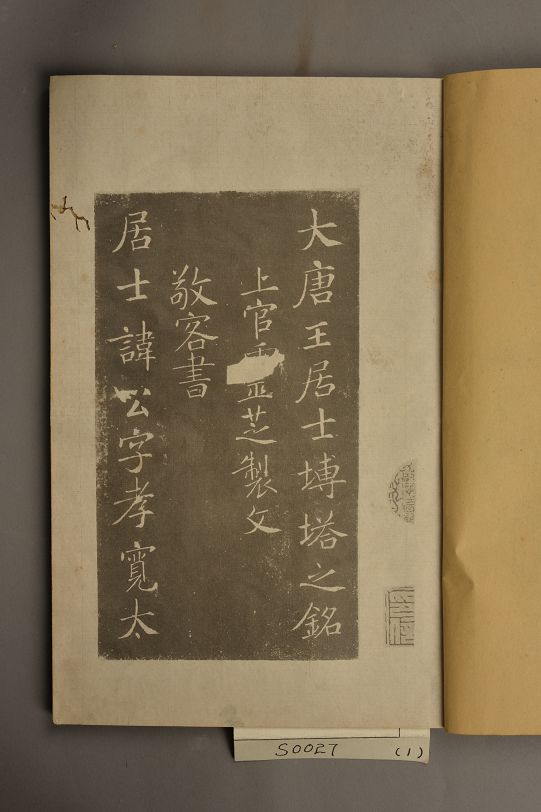 大唐王居士塼塔之銘
上官靈芝製文
敬客書
居士諱公字孝寬太
S0027 (1)